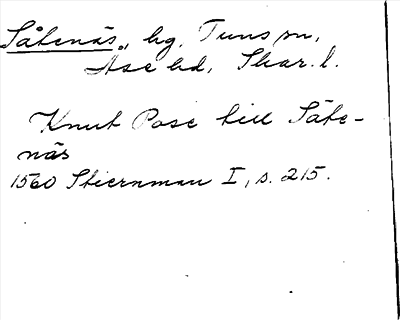 Såtenäs, hg, Tuns sn,
Åse hd, Skar. l.
Knut Posse till Såte-
näs
1560 Stiernman I, s. 215.